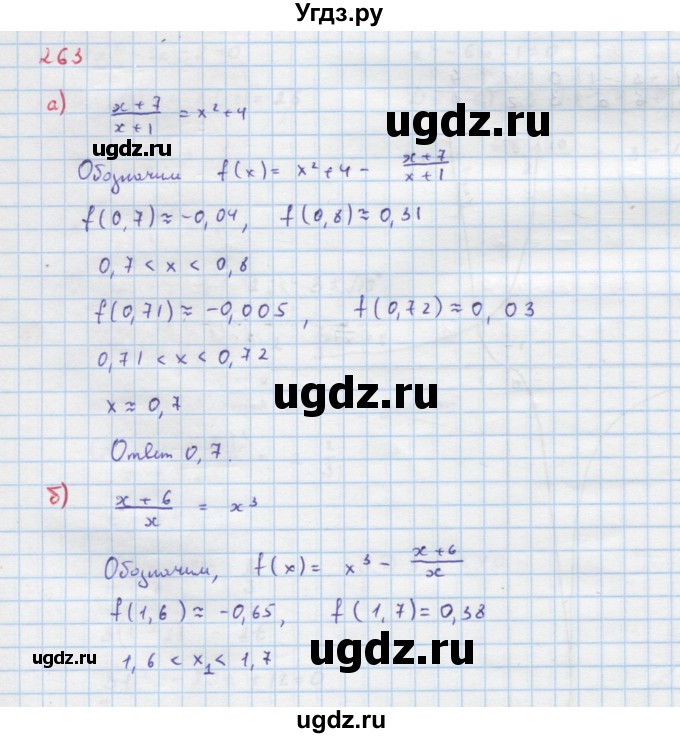 Угдз.ру
263
а) (x+7)/(x+1) = x²+4
ugdz.ru
ugdz.ru
Обозначим f(x) = x²+4 - (x+7)/(x+1)
f(0,7) ≈ -0,04, f(0,8) ≈ 0,31
0,7 < x < 0,8
f(0,71) ≈ -0,005, f(0,72) ≈ 0,03
0,71 < x < 0,72
ugdz.ru
x ≈ 0,7
Ответ 0,7.
б) (x+6)/x = x³
Обозначим, f(x) = x³ - (x+6)/x
f(1,6) ≈ -0,65, f(1,7) = 0,38
ugdz.ru
ugdz.ru
1,6 < x₁ < 1,7
ugdz.ru